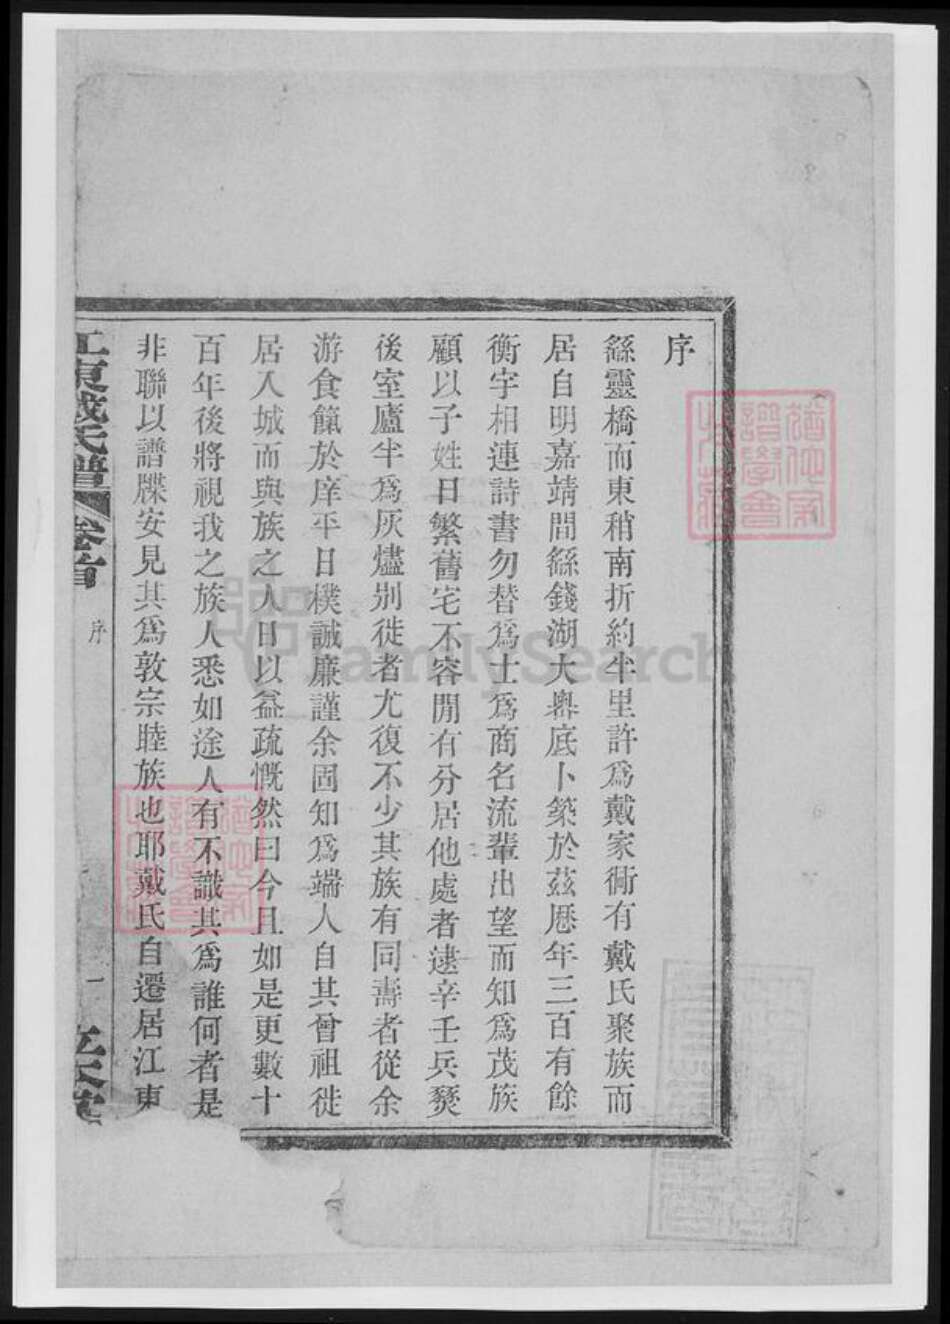 序
繇靈橋而東稍南折約半里許爲戴家衕有戴氏聚族而
居自明嘉靖間繇錢湖大嶴底卜築於茲厯年三百有餘
衡宇相連詩書勿替爲士爲商名流輩出望而知爲茂族
顧以子姓日繁舊宅不容閒有分居他處者逮辛壬兵燹
後室廬半爲灰燼别徙者尤復不少其族有同壽者從余
游食餼於庠平日樸誠廉謹余固知爲端人自其曾祖徙
居入城而與族之人日以益疏慨然曰今且如是更數十
百年後將視我之族人悉如途人有不識其爲誰何者是
非聯以譜牒安見其爲敦宗睦族也耶戴氏自遷居江東
江東戴氏譜 卷首 序 一
FamilySearch